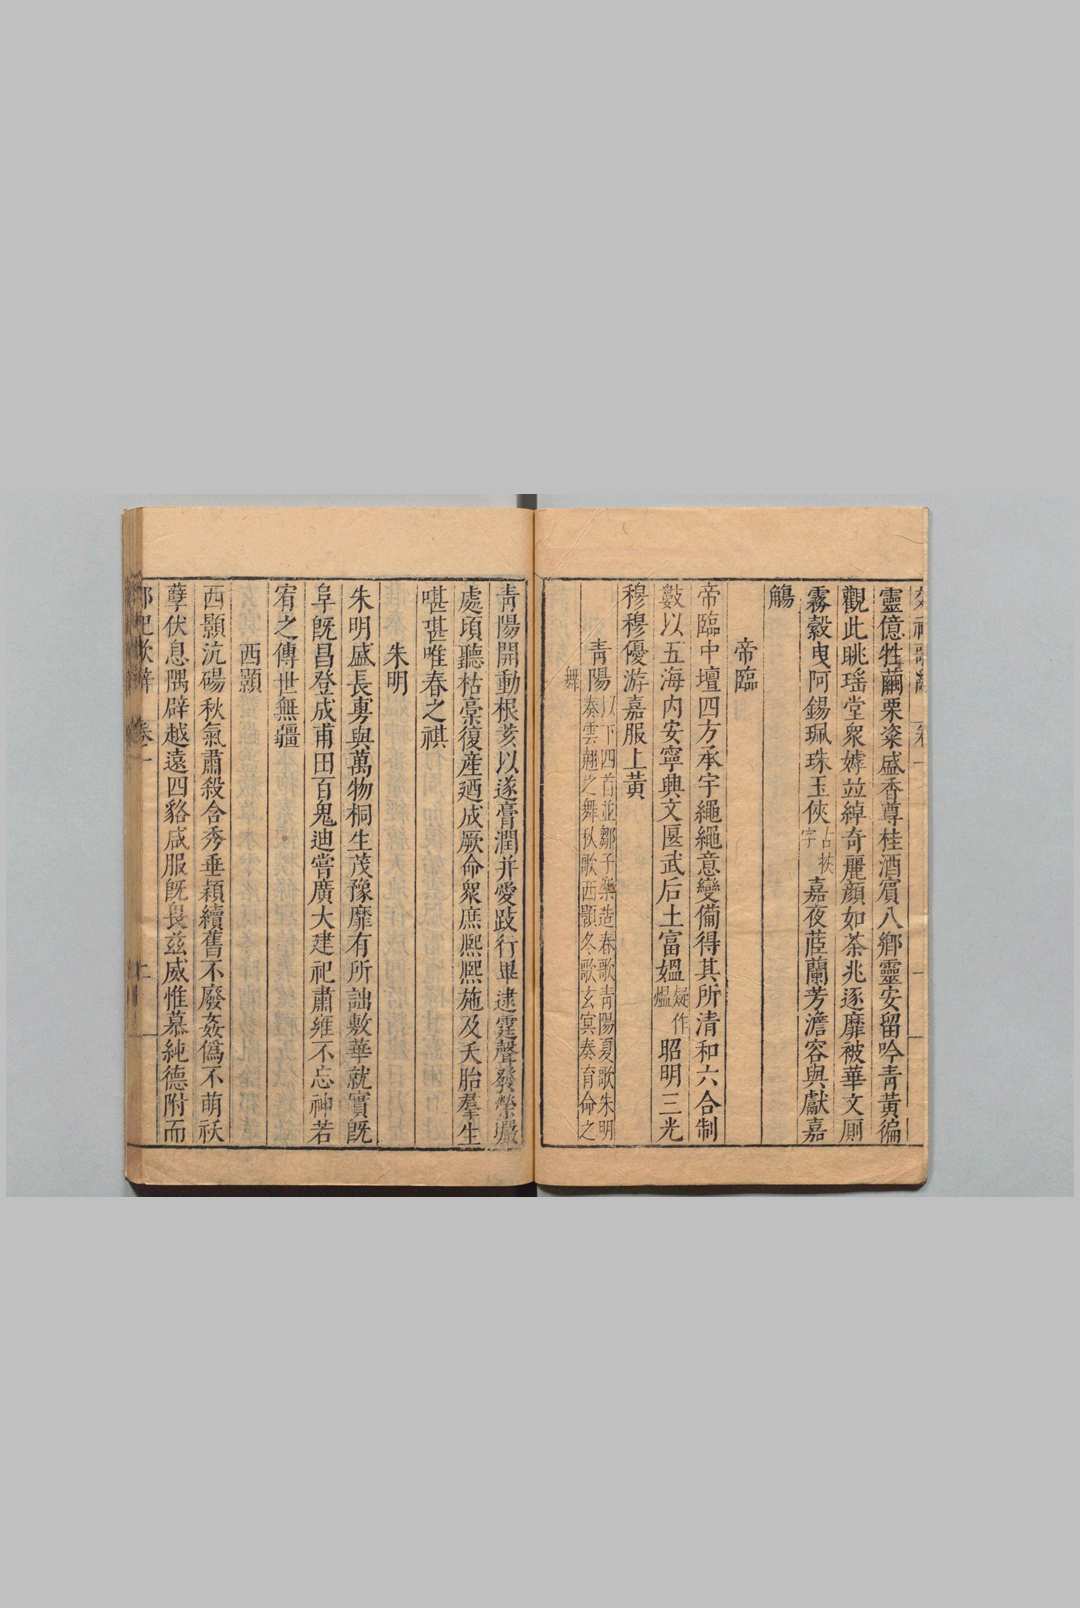 靈億牲繭栗粢盛香尊桂酒賓八鄉靈安留吟青黃徧
觀此眺瑤堂眾嫭竝綽奇麗顏如荼兆逐靡被華文厠
霧縠曳阿錫珮珠玉俠古挾字嘉夜茝蘭芳澹容與獻嘉
觴
帝臨
帝臨中壇四方承宇繩繩意變備得其所清和六合制
數以五海内安寧興文匽武后土富媪疑作煴昭明三光
穆穆優游嘉服上黃
青陽以下四首並鄒子樂造春歌青陽夏歌朱明
奏雲翹之舞秋歌西顥冬歌玄冥奏育命之
舞
青陽開動根荄以遂膏潤并愛跂行畢逮霆聲發榮巖
處頃聽枯槀復產廼成厥命眾庶熙熙施及夭胎羣生
啿啿唯春之祺
朱明
朱明盛長旉與萬物桐生茂豫靡有所詘敷華就實旣
阜旣昌登成甫田百鬼迪嘗廣大建祀肅雍不忘神若
宥之傳世無疆
西顥
西顥沆碭秋氣肅殺含秀垂穎續舊不廢姦僞不萌祅
孽伏息隅辟越遠四貉咸服旣畏兹威惟慕純德附而
卷一 二